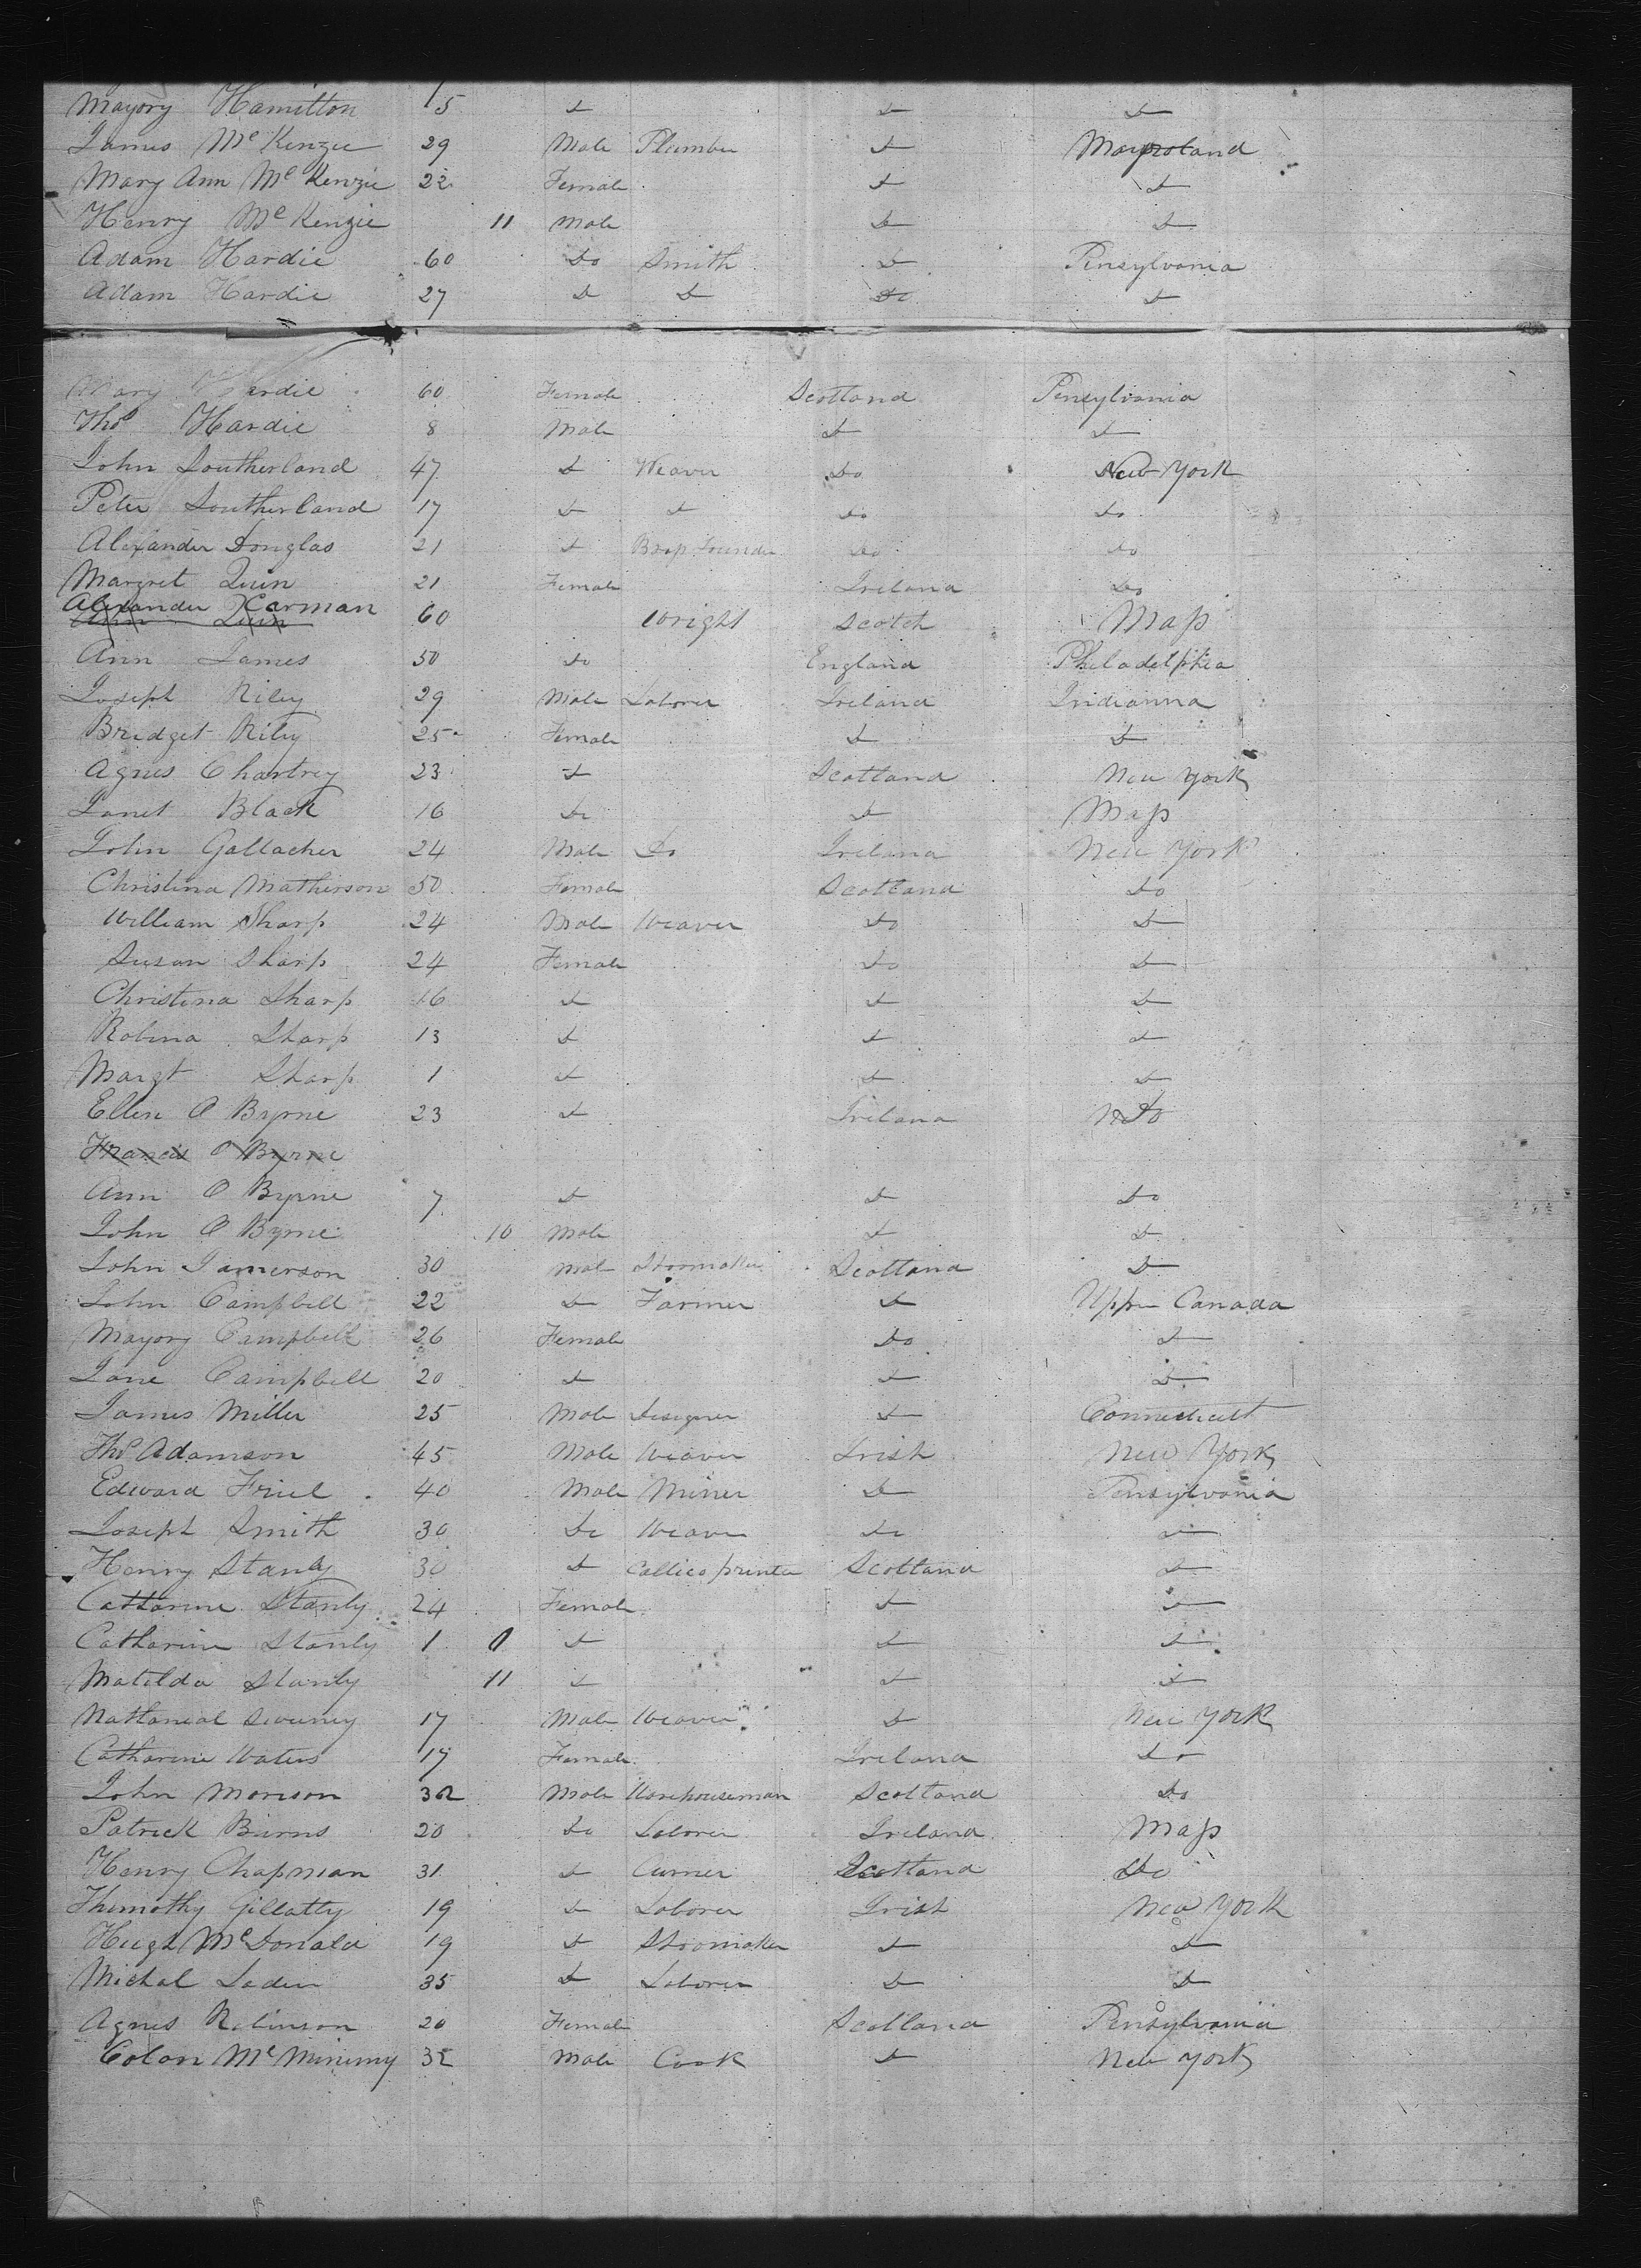 Mayory Hamilton 5 Do Do Do
James McKenzie 29 Male Plumber Do Maryland
Mary Ann McKenzie 22 Female Do Do
Henry McKenzie 11 Male Do Do
Adam Hardie 60 Do Smith Do Pensylvania
Adam Hardie 27 Do Do Do Do
Mary Hardie 60 Female Scotland Pensylvania
Thos Hardie 8 Male Do Do
John Southerland 47 Do Weaver Do New York
Peter Southerland 17 Do Do Do Do
Alexander Douglas 21 Do Brass Founder Do Do
Margret Quin 21 Female Ireland Do
Alexander Carman 60 Wright Scotch Mass
Ann Quin
Ann James 50 Do England Philadelphia
Joseph Riley 29 Male Laborer Ireland Indianna
Bridget Riley 25 Female Do Do
Agnes Chartrey 23 Do Scotland New York
Janet Black 16 Do Do Mass
John Gallacher 24 Male Do Ireland New York
Christina Mathieson 50 Female Scotland Do
William Sharp 24 Male Weaver Do Do
Susan Sharp 24 Female Do Do
Christina Sharp 16 Do Do Do
Robina Sharp 13 Do Do Do
Margt Sharp 1 Do Do Do
Ellen O Byrne 23 Do Ireland Do
Francis O Byrne
Ann O Byrne 7 Do Do Do
John O Byrne 10 Male Do Do
John Jamerson 30 Male Shoomaker Scotland Do
John Campbell 22 Do Farmer Do Upper Canada
Mayory Campbell 26 Female Do Do
Jane Campbell 20 Do Do Do
James Miller 25 Male Designer Do Connecticutt
Thos Adamson 45 Male Weaver Irish New York
Edward Friel 40 Male Miner Do Pensylvania
Joseph Smith 30 Do Weaver Do Do
Henry Stanly 30 Do Callico printer Scotland Do
Catharine Stanly 24 Female Do Do
Catharine Stanly 1 0 Do Do Do
Matilda Stanly 11 Do Do Do
Nathanial Sweeny 17 Male Weaver Do New York
Catharine Waters 17 Female Ireland Do
John Morison 32 Male Warehouseman Scotland Do
Patrick Burns 20 Do Laborer Ireland Mass
Henry Chapman 31 Do Turner Scotland Do
Thimothy Gillatly 19 Do Laborer Irish New York
Hugh McDonald 19 Do Shoomaker Do Do
Michal Laden 35 Do Laborer Do Do
Agnes Robinson 20 Female Scotland Pensylvania
Colon McMinimy 32 Male Cook Do New York